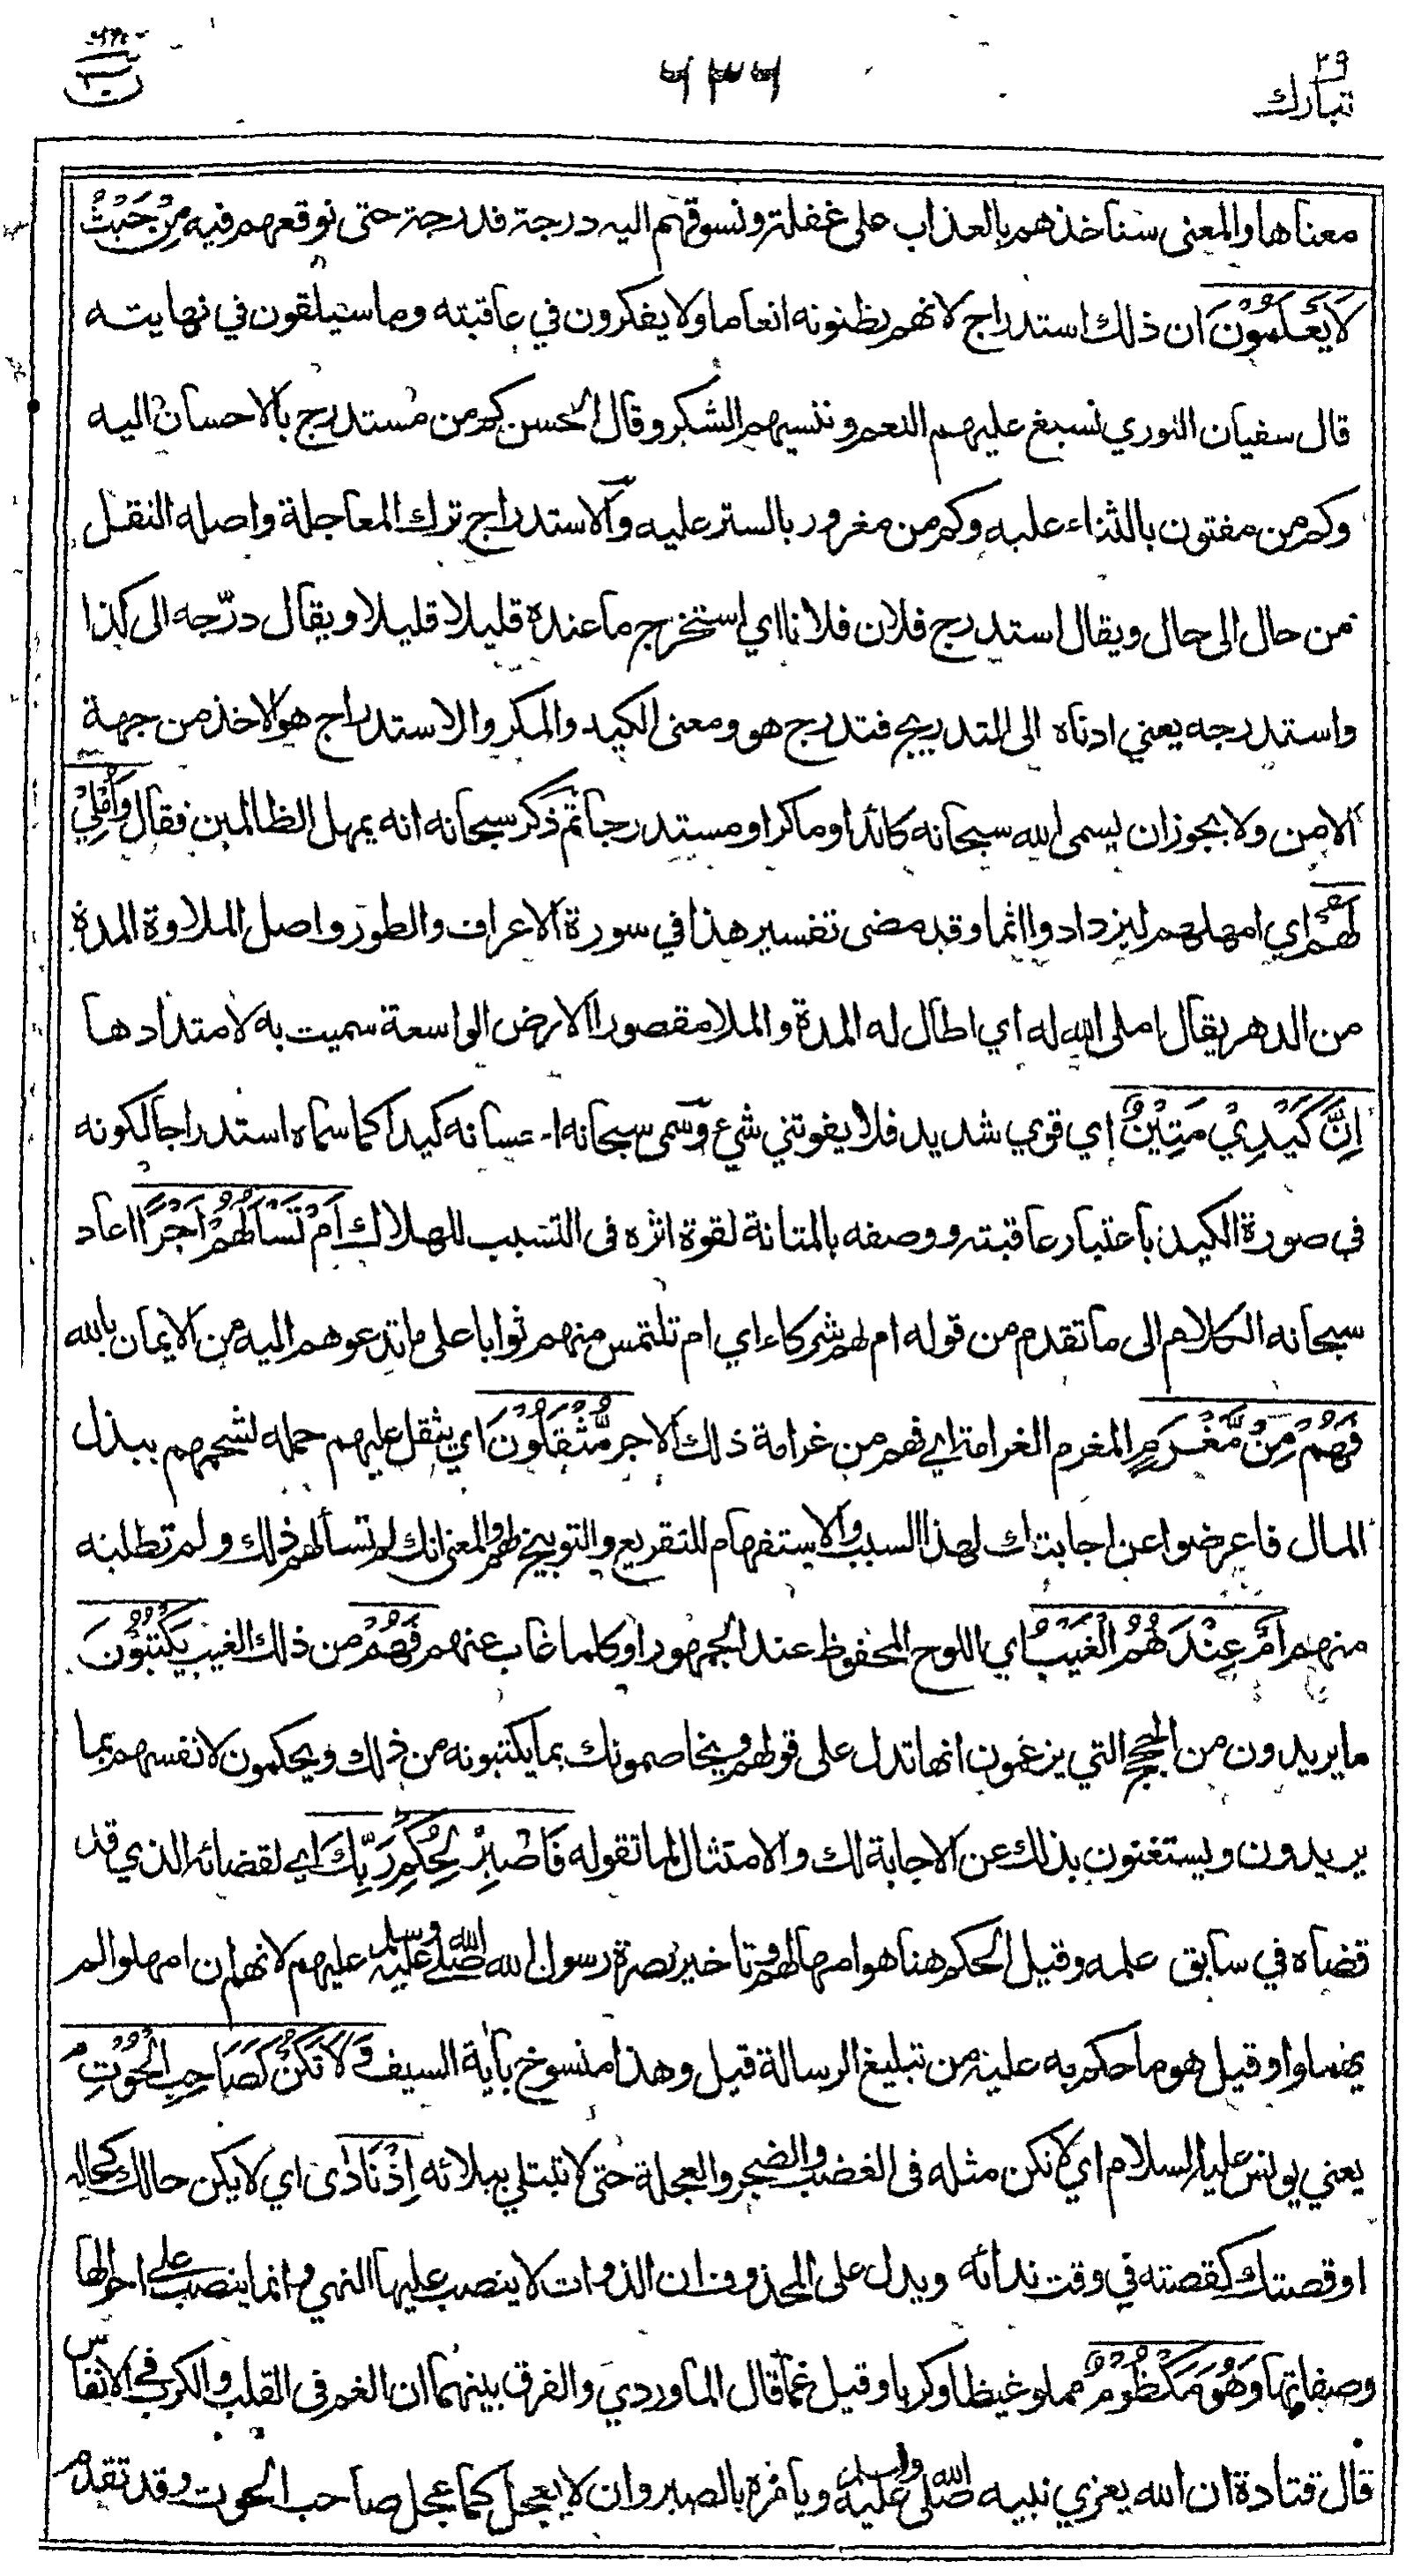 ٢٩
تبارك
٤٣٤
معناها والمعنى سناخذهم بالعذاب على غفلة ونسوقهم اليه درجة فدرجة حتى نوقعهم فيه مِنْ حَيْثُ
لَا يَعْلَمُوْنَ ان ذلك استدراج لانهم يظنونه انعاما ولا يفكرون في عاقبته وما سيلقون في نهايته
قال سفيان الثوري نسبغ عليهم النعم وننسيهم الشكر وقال الحسن كم من مستدرج بالاحسان اليه
وكم من مفتون بالثناء عليه وكم من مغرور بالستر عليه والاستدراج ترك المعاجلة واصله النقل
من حال الى حال ويقال استدرج فلان فلانا اي استخرج ما عنده قليلا قليلا ويقال درّجه الى كذا
واستدرجه يعني ادناه الى التدريج فتدرج هو ومعنى الكيد والمكر والاستدراج هو الاخذ من جهة
الامن ولا يجوز ان يسمى الله سبحانه كائدا وماكرا ومستدرجا ثم ذكر سبحانه انه يمهل الظالمين فقال وَاُمْلِيْ
لَهُمْ اي امهلهم ليزدادوا اثما وقد مضى تفسير هذا في سورة الاعراف والطور واصل الملاوة المدة
من الدهر يقال املى الله له اي اطال له المدة والملا مقصورا الارض الواسعة سميت به لامتدادها
اِنَّ كَيْدِيْ مَتِيْنٌ اي قوي شديد فلا يفوتني شيء وسمى سبحانه احسانه كيدا كما سماه استدراجا لكونه
في صورة الكيد باعتبار عاقبته ووصفه بالمتانة لقوة اثره في التسبب للهلاك اَمْ تَسْاَلُهُمْ اَجْرًا اعاد
سبحانه الكلام الى ما تقدم من قوله ام لهم شركاء اي ام تلتمس منهم ثوابا على ما تدعوهم اليه من الايمان بالله
فَهُمْ مِّنْ مَّغْرَمٍ المغرم الغرامة اي فهم من غرامة ذلك الاجر مُّثْقَلُوْنَ اي يثقل عليهم حمله لشحهم ببذل
المال فاعرضوا عن اجابتك لهذا السبب والاستفهام للتقريع والتوبيخ لهم والمعنى انك لم تسألهم ذلك ولم تطلبه
منهم اَمْ عِنْدَهُمُ الْغَيْبُ اي اللوح المحفوظ عند الجمهور او كلما غاب عنهم فَهُمْ من ذلك الغيب يَكْتُبُوْنَ
ما يريدون من الحجج التي يزعمون انها تدل على قولهم ويخاصمونك بما يكتبونه من ذلك ويحكمون لانفسهم بما
يريدون ويستغنون بذلك عن الاجابة لك والامتثال لما تقوله فَاصْبِرْ لِحُكْمِ رَبِّكَ اي لقضائه الذي قد
قضاه في سابق علمه وقيل الحكم هنا هو امهالهم وتاخير نصرة رسول الله صلى الله عليه وسلم عليهم لانهم ان امهلوا لم
يهملوا وقيل هو ما حكم به عليه من تبليغ الرسالة قيل وهذا منسوخ بآية السيف وَلَا تَكُنْ كَصَاحِبِ الْحُوْتِ
يعني يونس عليه السلام اي لا تكن مثله في الغضب والضجر والعجلة حتى لا تبتلي ببلائه اِذْ نَادٰى اي لا يكن حالك كحاله
او قصتك كقصته في وقت ندائه ويدل على المحذوف ان الذوات لا ينصب عليها النهي وانما ينصب على احوالها
وصفاتها وَهُوَ مَكْظُوْمٌ مملو غيظا وكربا وقيل غما قال الماوردي والفرق بينهما ان الغم في القلب والكرب في الانفاس
قال قتادة ان الله يعزي نبيه صلى الله عليه واله وسلم ويامره بالصبر وان لا يعجل كما عجل صاحب الحوت وقد تقدم